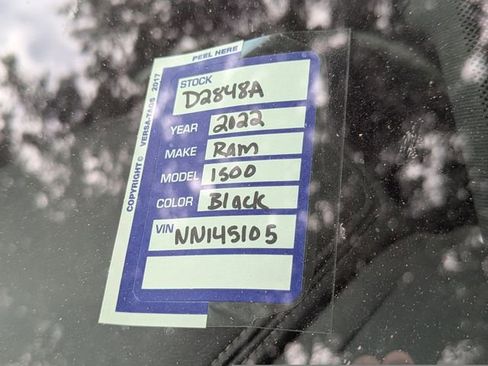 PEEL HERE
COPYRIGHT© VERSA-TAGS 2017
STOCK
D2848A
YEAR 2022
MAKE Ram
MODEL 1500
COLOR Black
VIN NN145105